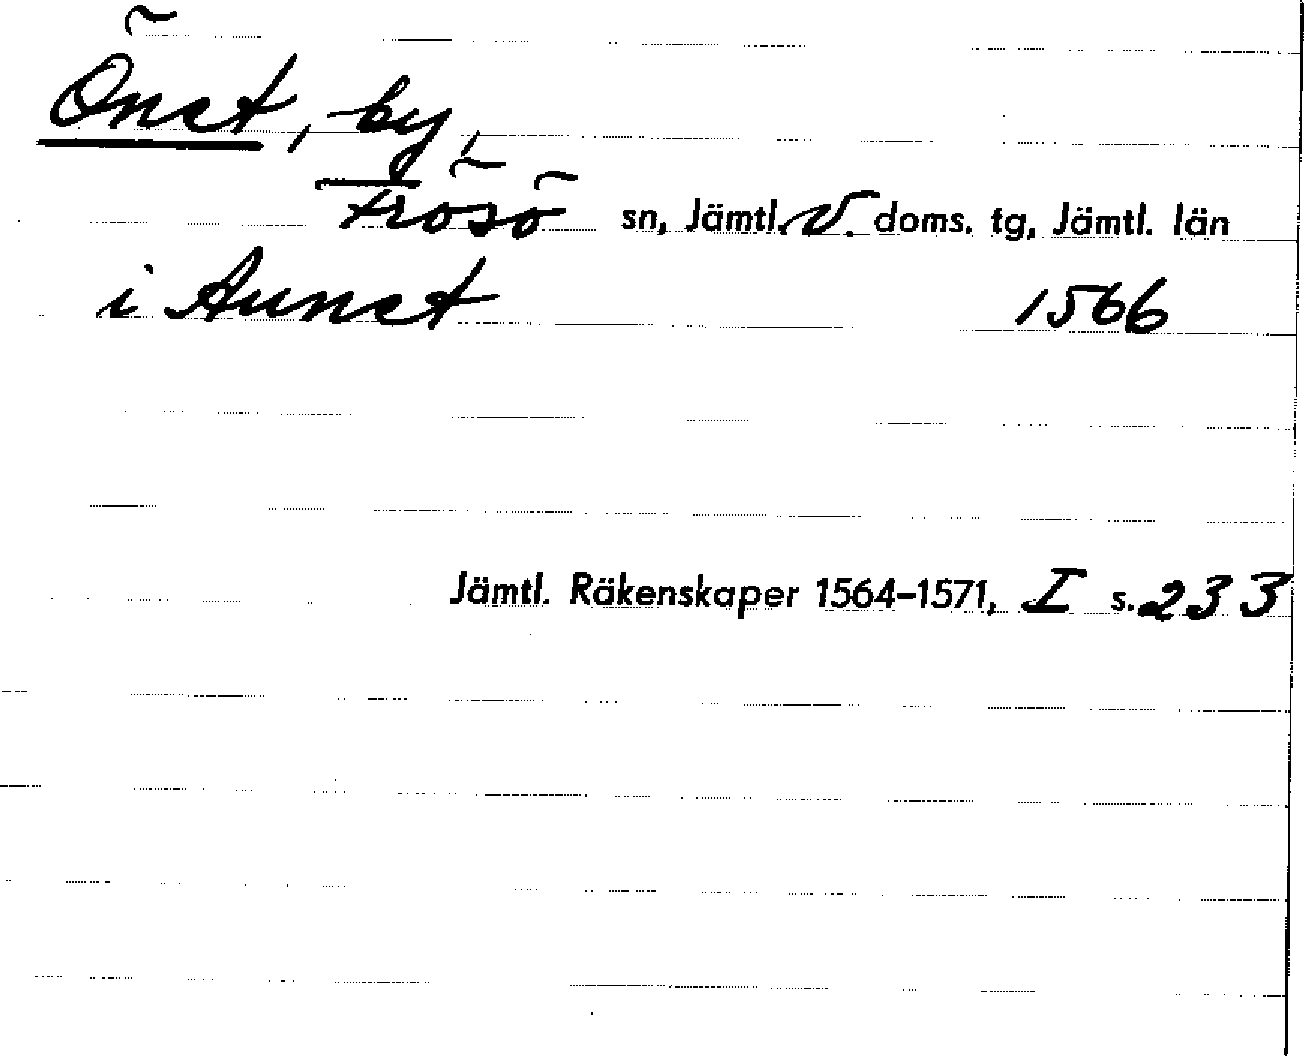 Önst, by,
Frösö sn, Jämtl. V. doms. tg, Jämtl. län
i Aunst 1566
Jämtl. Räkenskaper 1564–1571, I s. 233